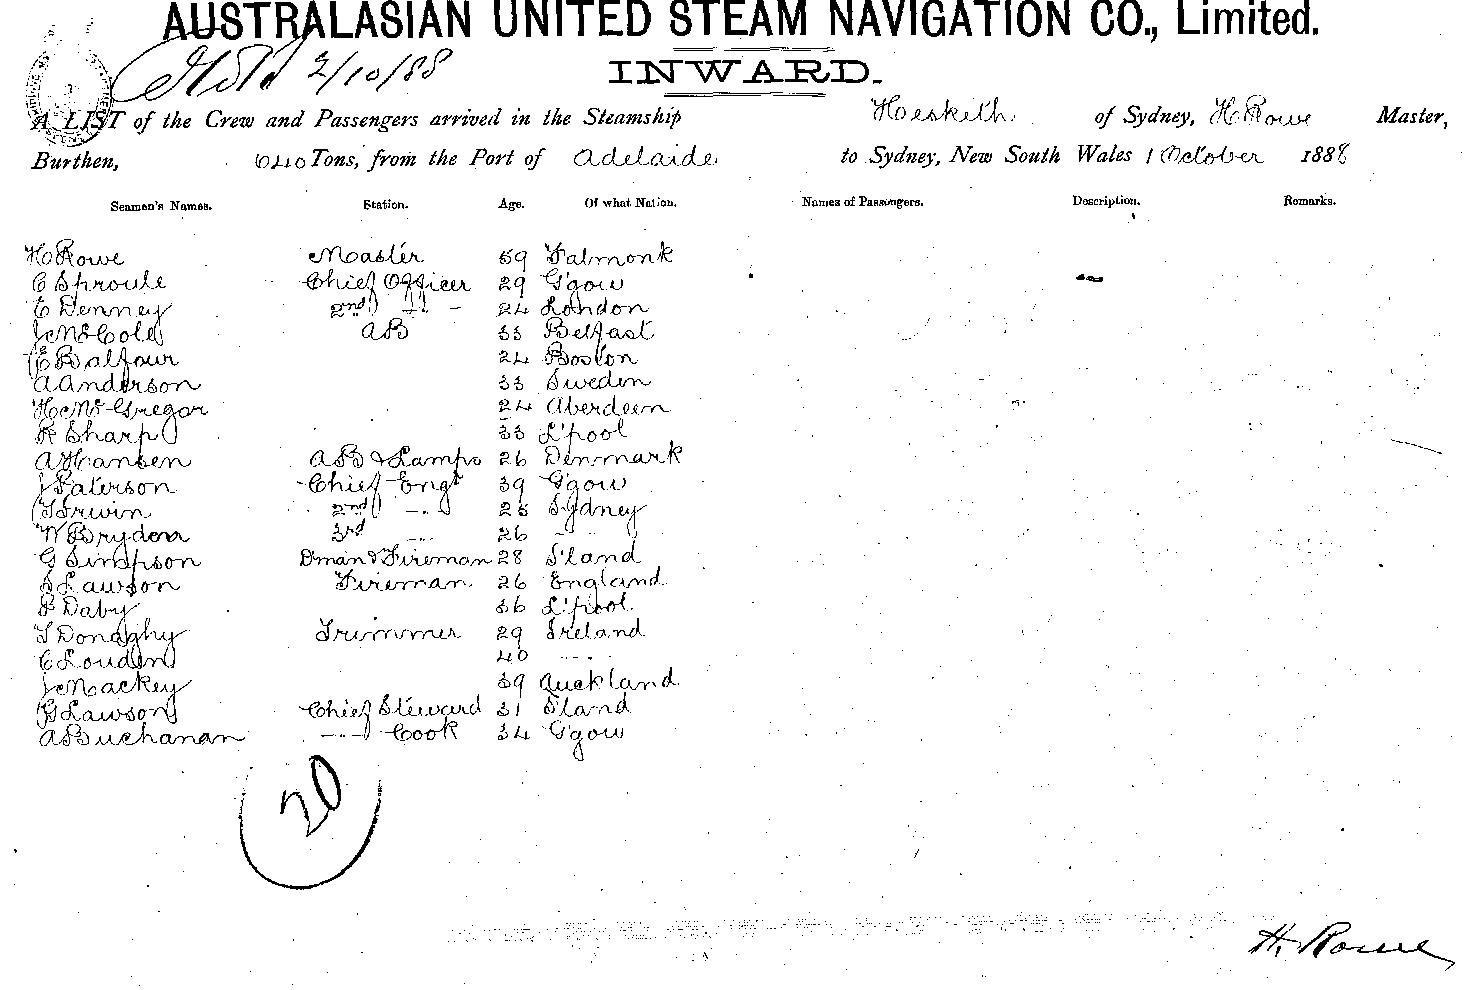 AUSTRALASIAN UNITED STEAM NAVIGATION CO., Limited.
2/10/88
INWARD.
A LIST of the Crew and Passengers arrived in the Steamship Hesketh of Sydney, H Rowe Master,
Burthen, 640 Tons, from the Port of Adelaide to Sydney, New South Wales 1 October 1888
Seamen's Names. Station. Age. Of what Nation. Names of Passengers. Description. Remarks.
H Rowe Master 59 Falmonk
C Sproule Chief Officer 29 G'gow
E Denney 2nd " - 24 London
J McCole AB 33 Belfast
E Balfour 24 Boston
A Anderson 33 Sweden
H McGregor 24 Aberdeen
R Sharp 33 L'pool
A Hansen AB & Lamps 26 Denmark
J Paterson Chief Engr 39 G'gow
T Irwin 2nd -..- 25 Sydney
W Bryden 3rd -..- 26 -..-
G Simpson Dman & Fireman 28 S'land
S Lawson Fireman 26 England
P Daby 36 L'pool
T Donaghy Trimmer 29 Ireland
C Louden 40 -..-
J Mackey 39 Auckland
G Lawson Chief Steward 31 S'land
A Buchanan -..- Cook 34 G'gow
20
H. Rowe